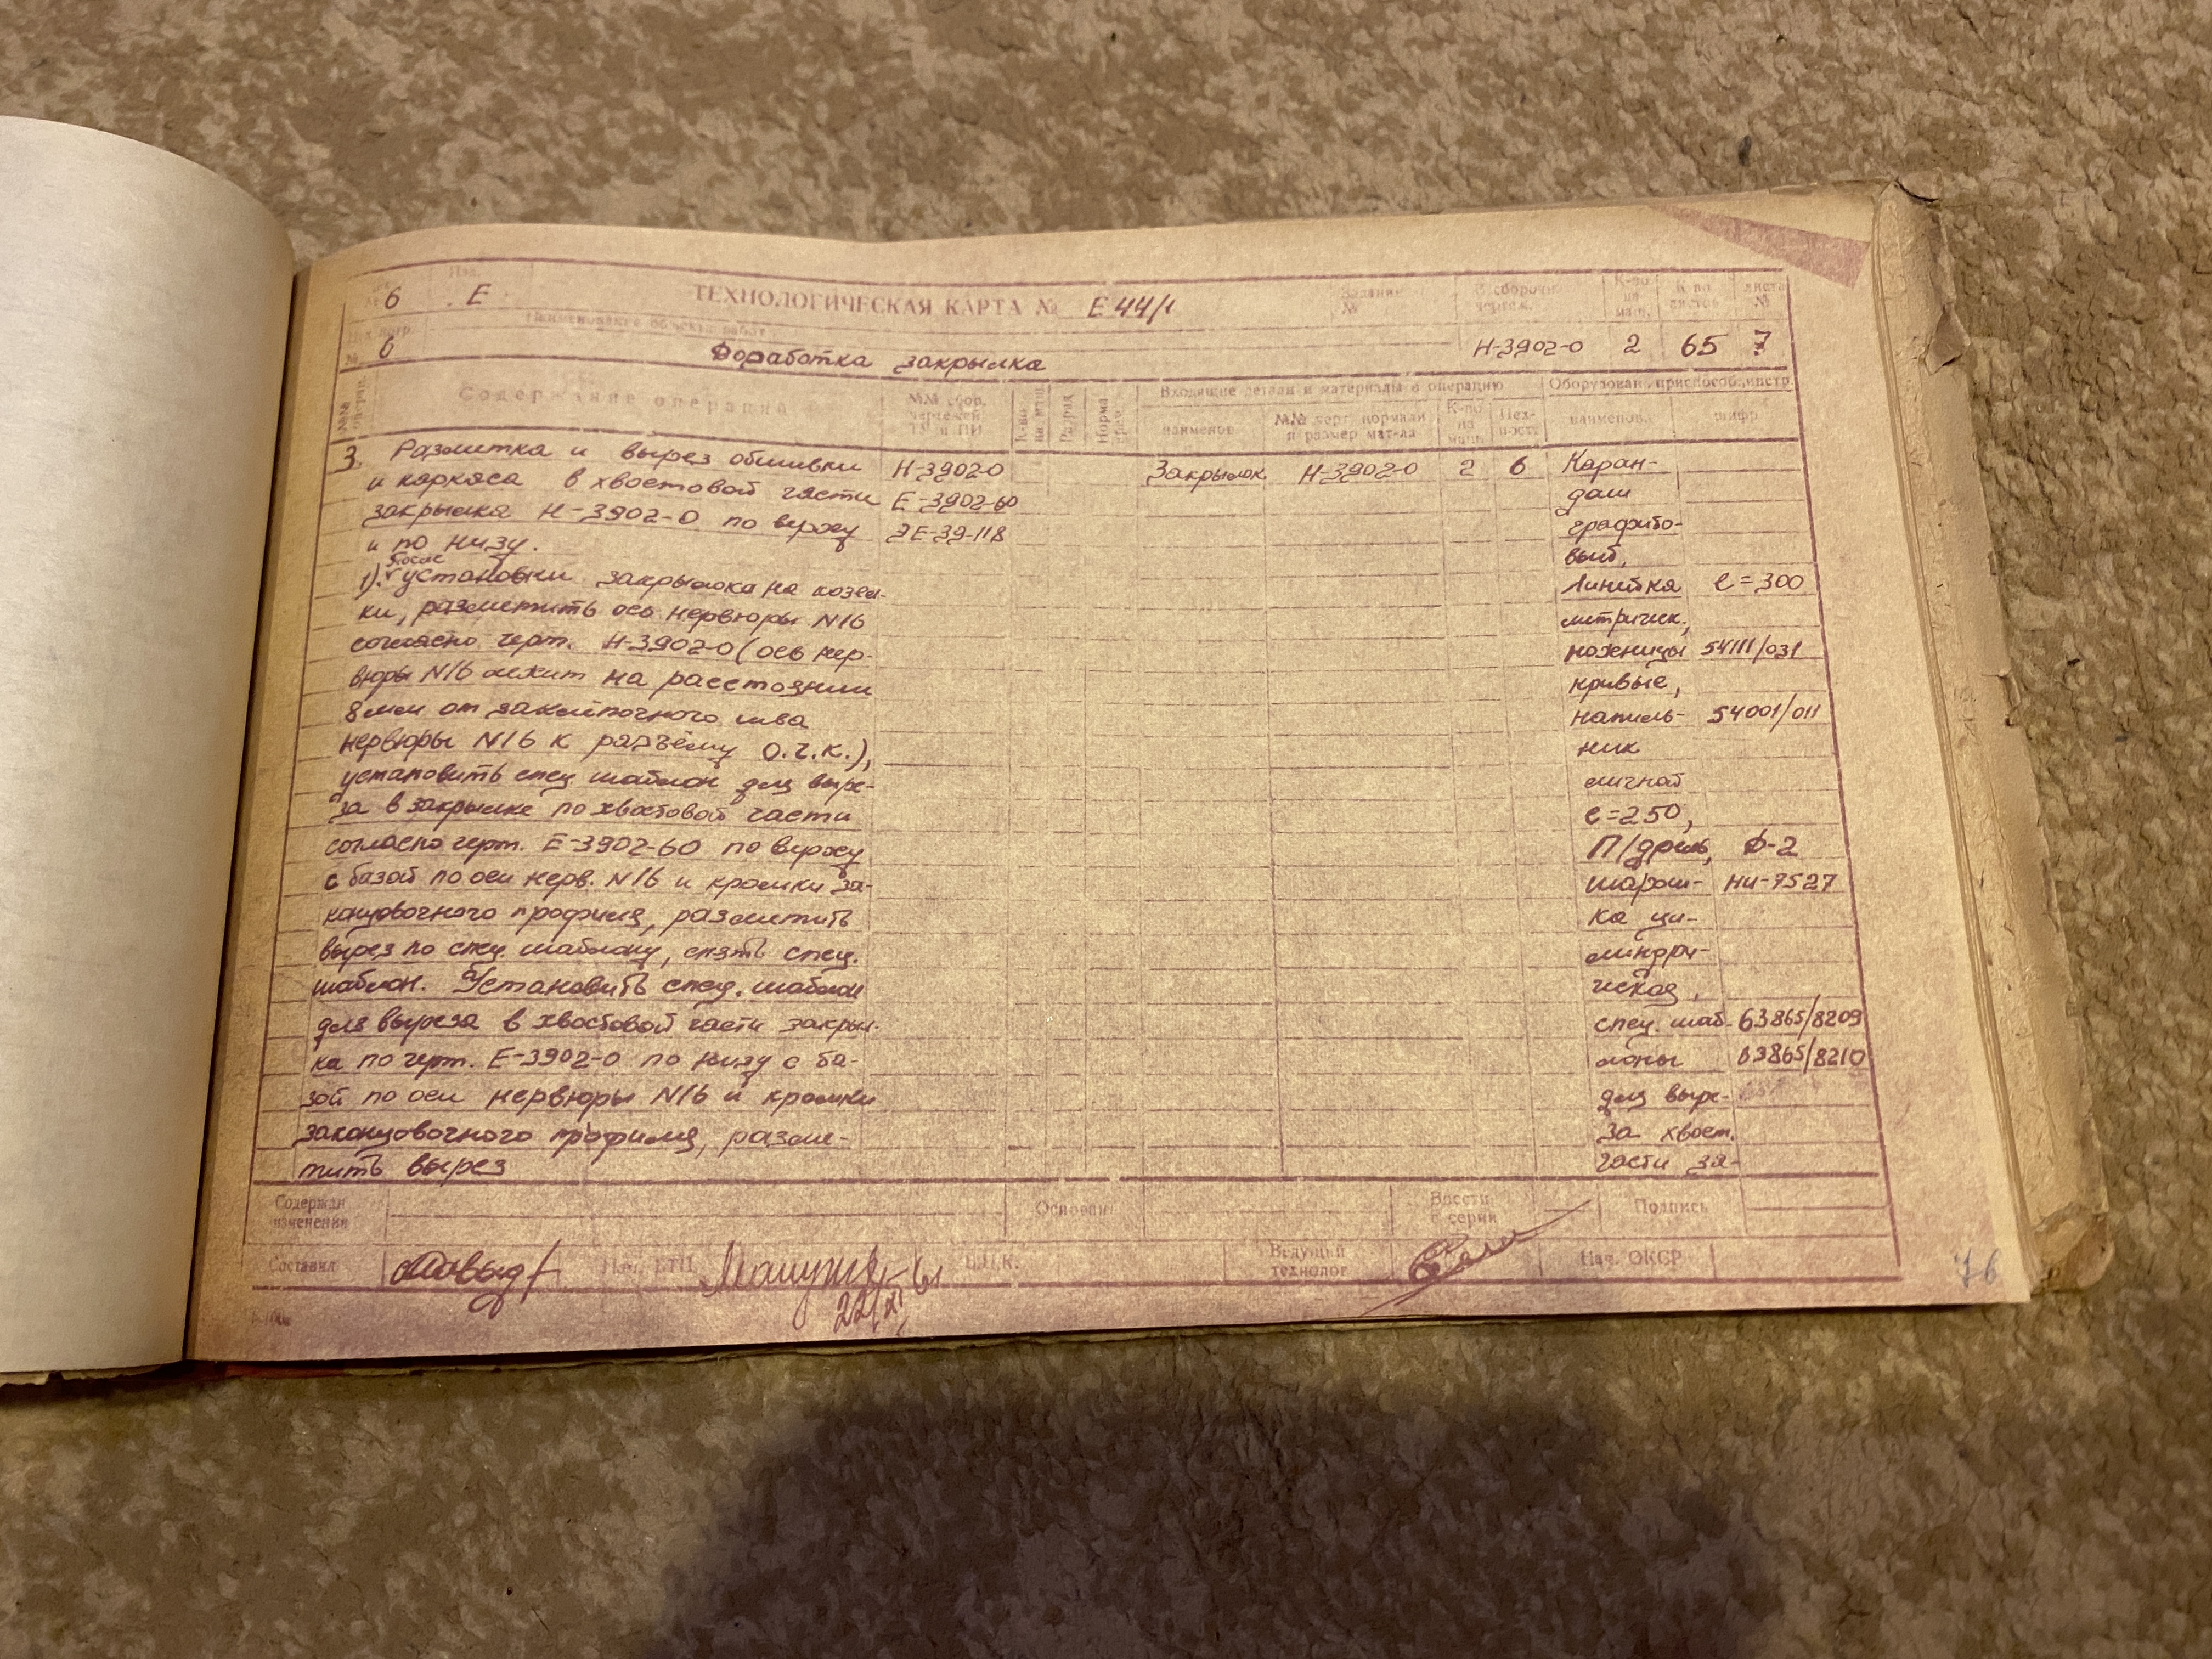 6 Изд. Е ТЕХНОЛОГИЧЕСКАЯ КАРТА № Е 44/1 Задание № № сбороч. чертеж. К-во на маш. К-во листов листа №
Наименование объекта работ
№ 6 Доработка закрылка Н-3902-0 2 65 7
№№ опер. Содержание операций №№ сбор. чертежей ТУ и ПИ К-во на маш. Разряд Норма врем. Входящие детали и материалы в операцию Оборудован., приспособ., инстр.
наименов. №№ черт. нормали и размер мат-ла К-во на маш. Цех- наименов. шифр
3. Разметка и вырез обшивки Н-3902-0 Закрылок Н-3902-0 2 6 Каран-
и каркаса в хвостовой части Е-3902-60 даш
закрылка Н-3902-0 по верху ЭЕ-39-118 графито-
и по низу. вый,
После
1). установки закрылка на козел- Линейка l=300
ки, разметить ось нервюры N16 метрическ.,
согласно черт. Н-3902-0 (ось нер- ножницы 54111/031
вюры N16 лежит на расстоянии кривые,
8мм от заклёпочного шва напиль- 54001/011
нервюры N16 к разъёму О.Ч.К.), ник
установить спец. шаблон для выре- личной
за в закрылке по хвостовой части l=250,
согласно черт. Е-3902-60 по верху П/дрель, Д-2
с базой по оси нерв. N16 и кромки за- шарош- НИ-7527
концовочного профиля, разметить ка ци-
вырез по спец. шаблону, снять спец. линдри-
шаблон. Установить спец. шаблон ческая,
для выреза в хвостовой части закрыл- спец. шаб- 63865/8209
ка по черт. Е-3902-0 по низу с ба- лоны 63865/8210
зой по оси нервюры N16 и кромки для выре-
законцовочного профиля, разме- за хвост.
тить вырез части за-
Содержан. изменения Основан. Ввести с серии Подпись
Составил Нач. БТЦ Б.Ц.К. Ведущий технолог Нач. ОКСР
22/XI
76